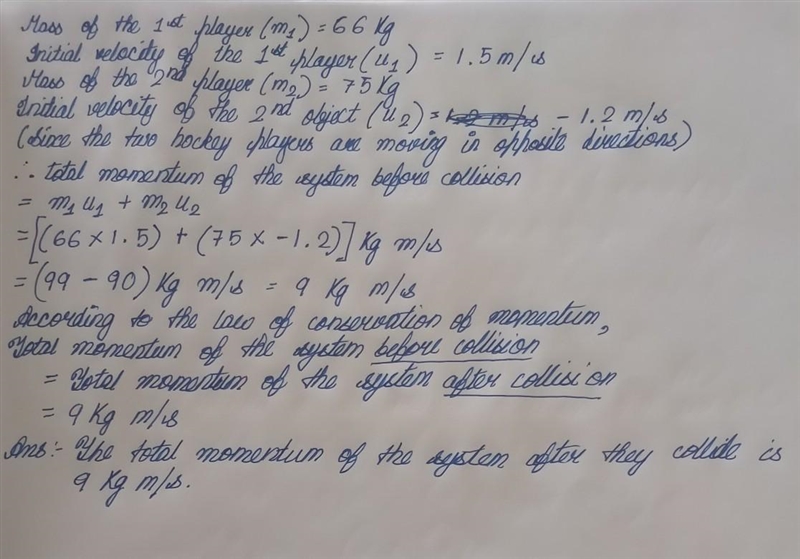 Mass of the 1st player (m1) = 66 Kg
Initial velocity of the 1st player (u1) = 1.5 m/s
Mass of the 2nd player (m2) = 75 Kg
Initial velocity of the 2nd object (u2) = - 1.2 m/s
(Since the two hockey players are moving in opposite directions)
∴ total momentum of the system before collision
= m1 u1 + m2 u2
= [(66 × 1.5) + (75 × -1.2)] Kg m/s
= (99 - 90) Kg m/s = 9 Kg m/s
According to the law of conservation of momentum,
Total momentum of the system before collision
= Total momentum of the system after collision
= 9 Kg m/s
Ans:- The total momentum of the system after they collide is
9 Kg m/s.